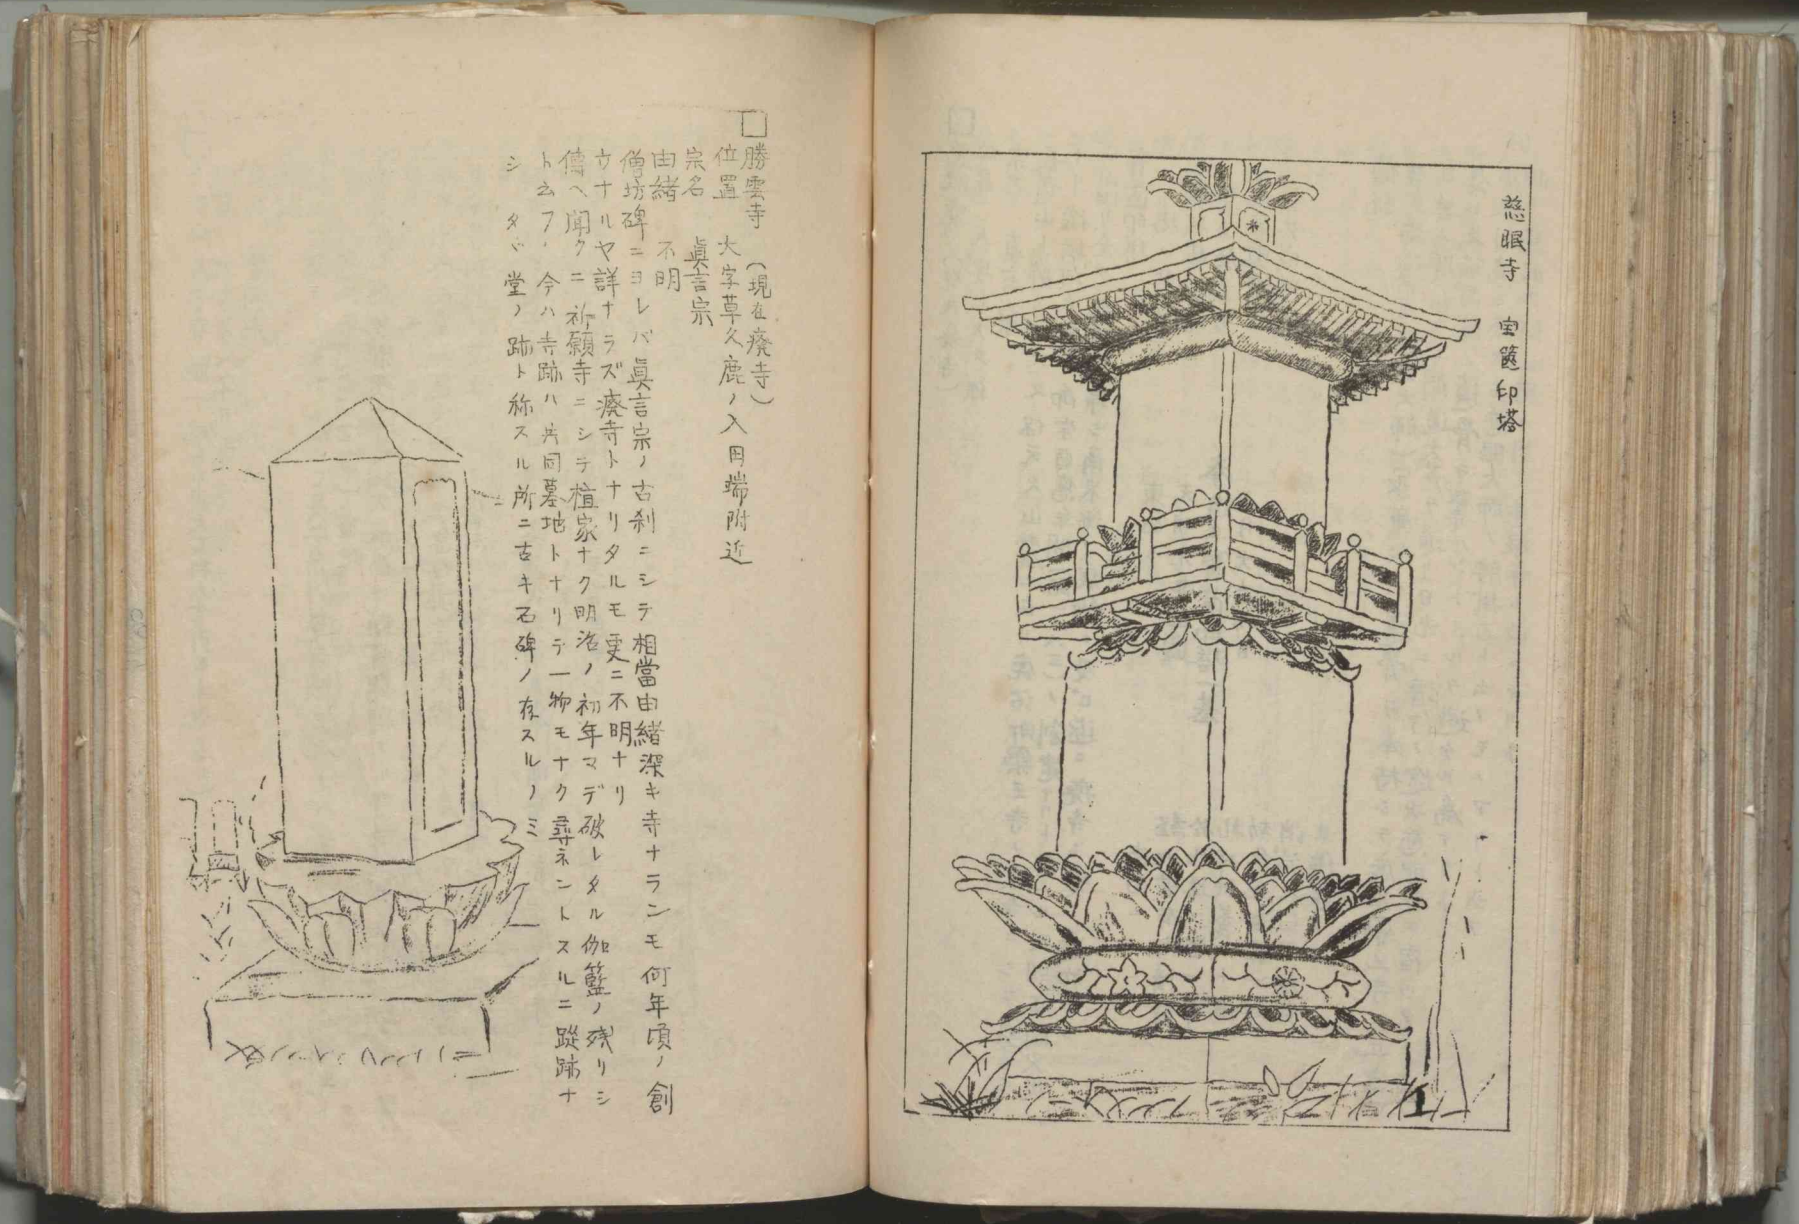 慈眠寺　宝篋印塔
□勝雲寺（現在廢寺）
位置　大字草久鹿ノ入田端附近
宗名　眞言宗
由緒　不明
僧坊碑ニヨレバ眞言宗ノ古刹ニシテ相當由緒深キ寺ナランモ何年頃ノ創
立ナルヤ詳ナラズ廢寺トナリタルモ更ニ不明ナリ
傳ヘ聞クニ祈願寺ニシテ檀家ナク明治ノ初年マデ破レタル伽籃ノ残リシ
ト云フ、今ハ寺跡ハ共同墓地トナリテ一物モナク尋ネントスルニ蹤跡ナ
シ　タヾ堂ノ跡ト称スル所ニ古キ石碑ノ存スルノミ